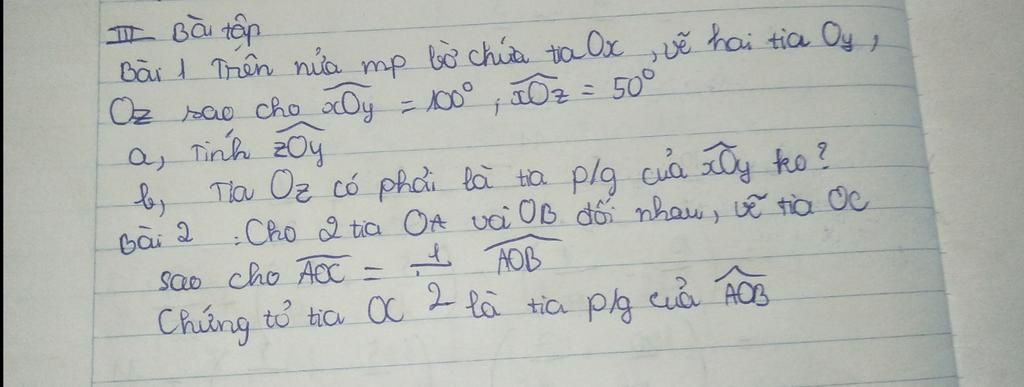 III Bài tập
Bài 1 Trên nửa mp bờ chứa tia Ox, vẽ hai tia Oy,
Oz sao cho xOy = 100°, xOz = 50°
a, Tính zOy
b, Tia Oz có phải là tia p/g của xOy ko?
Bài 2 : Cho 2 tia OA và OB đối nhau, vẽ tia OC
sao cho AOC = 1/2 AOB
Chứng tỏ tia OC là tia p/g của AOB